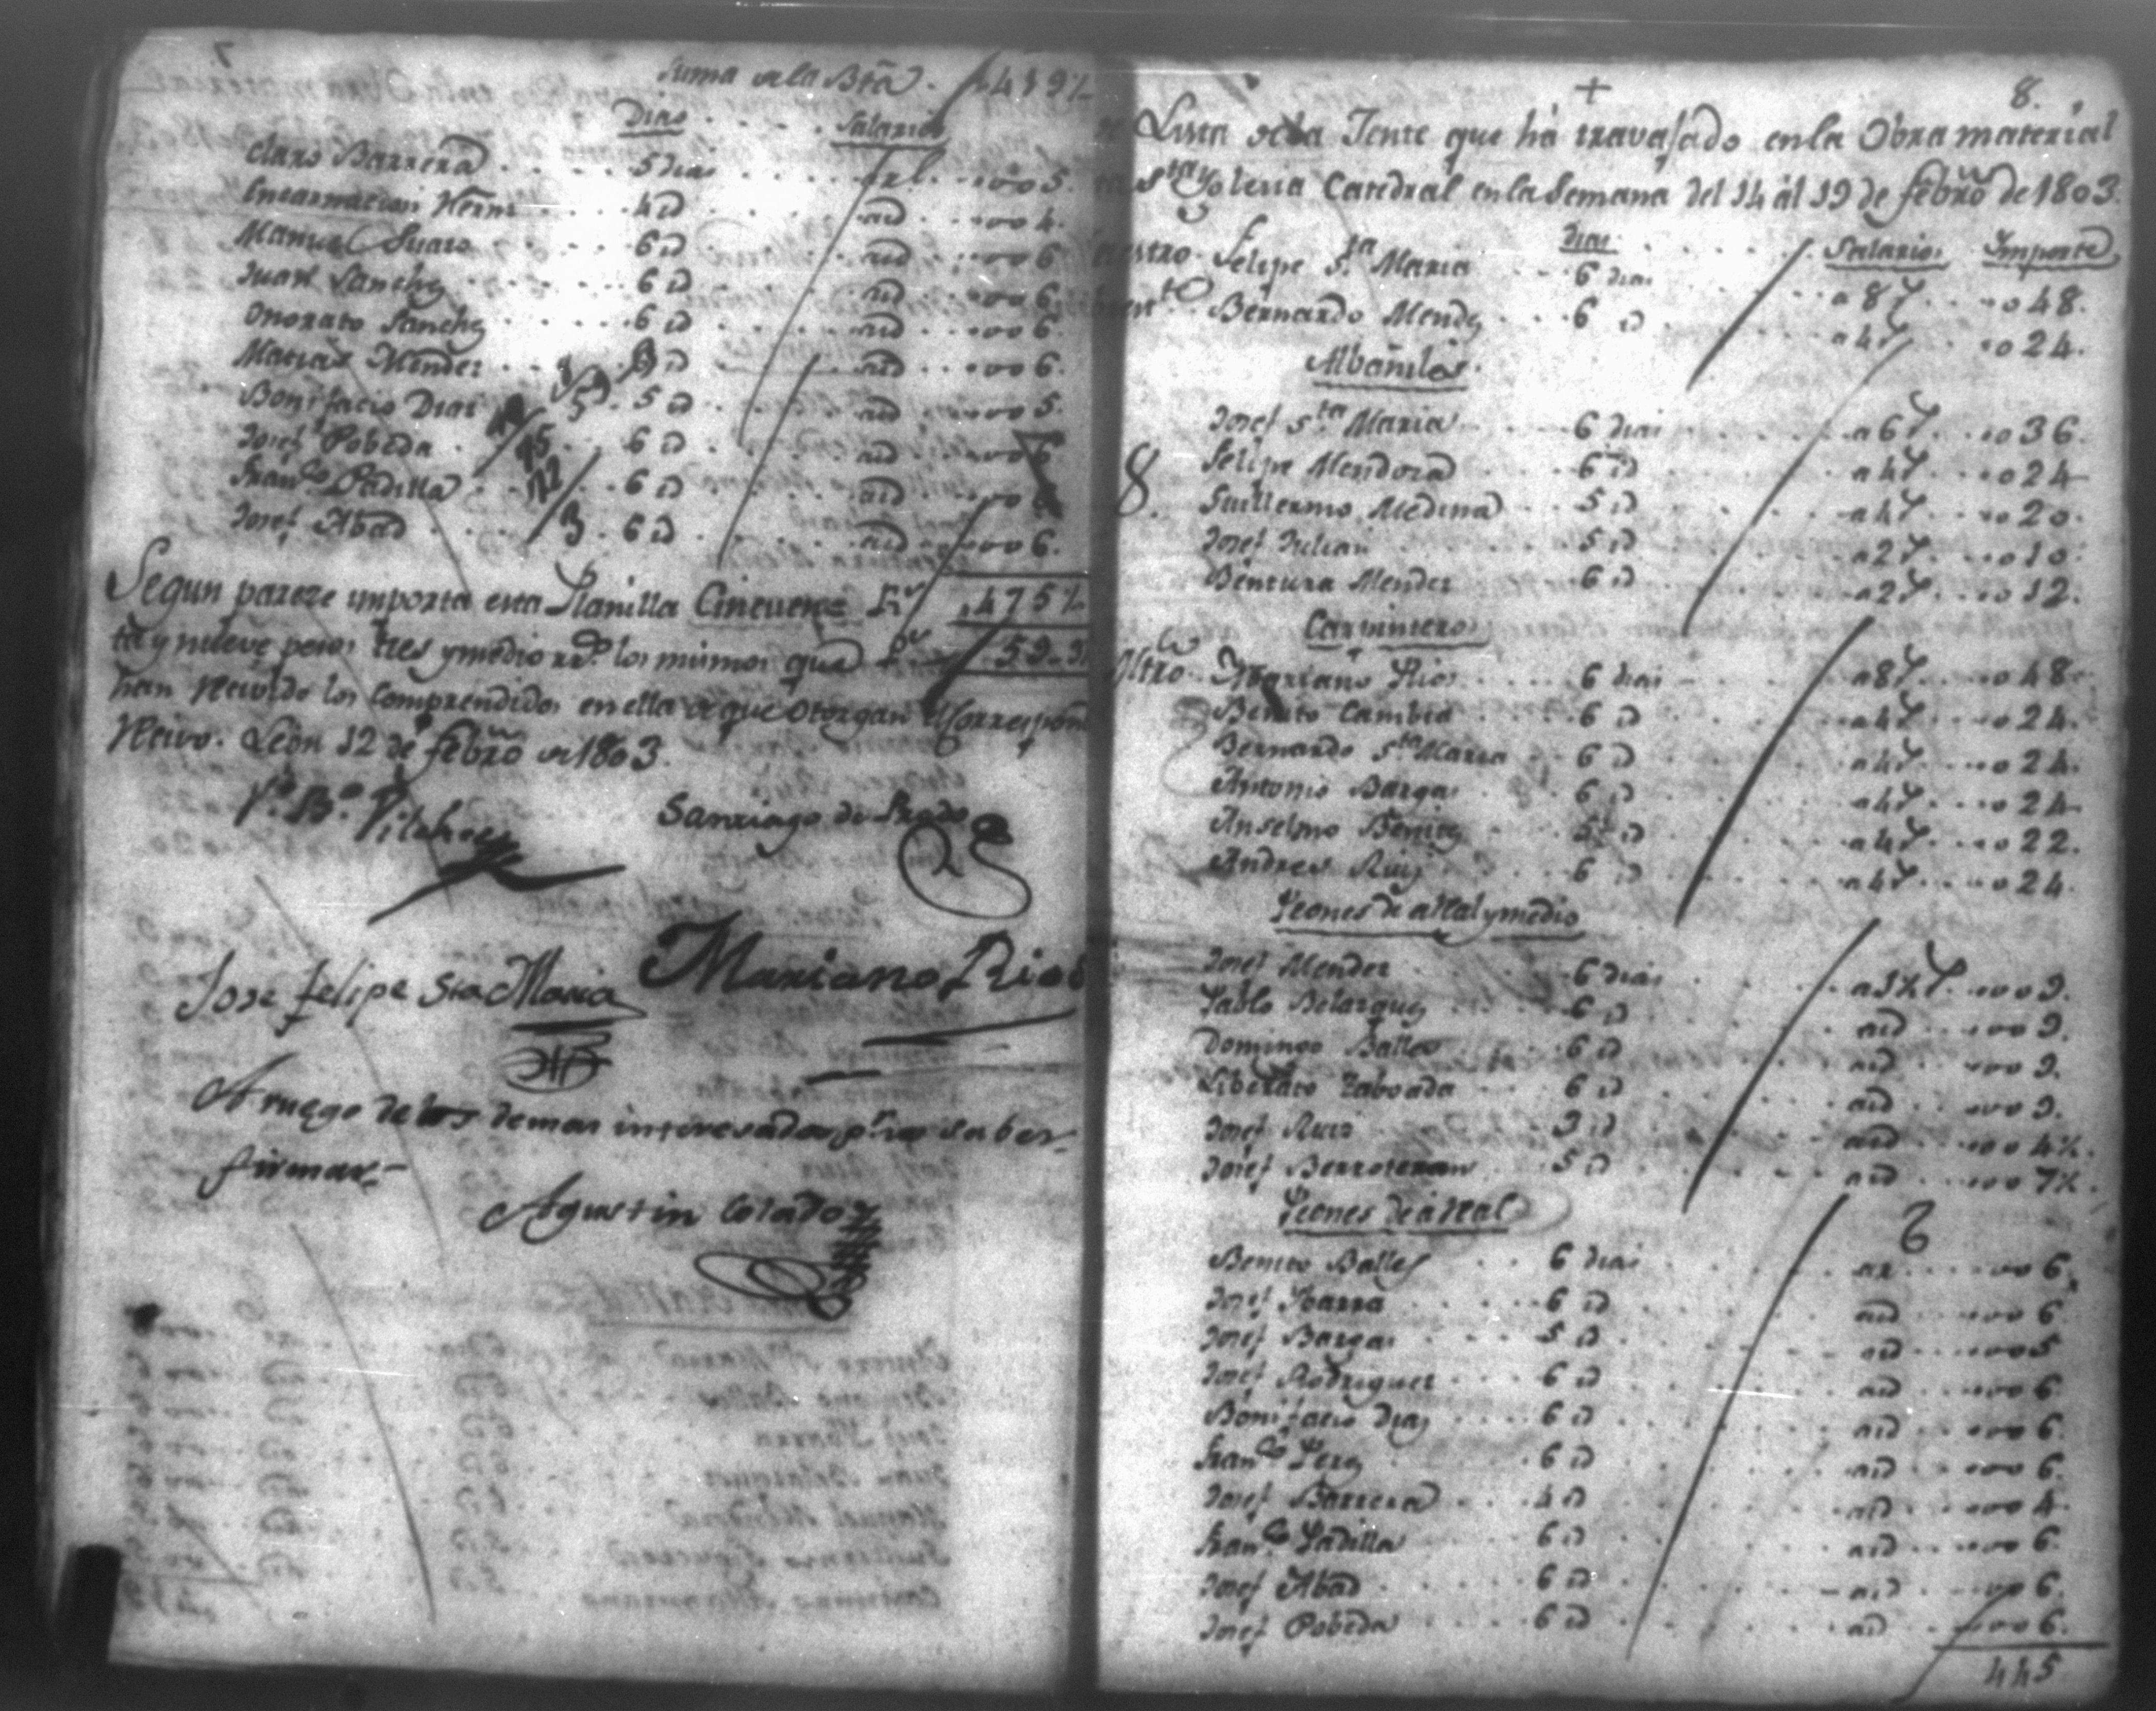 7
Suma de la Bta. 4 1 9 ½
Dias Salarios
Claro Barrera 5 dias a 1 rl. 5.
Encarnacion Hernz 4 id id 4.
Manuel Suaso 6 id id 6
Juan Sanchz 6 id id 6.
Onorato Sanchz 6 id id 6
Matias Mendez 6 id id 6.
Bonifacio Dias 5 id id 5.
Josef Pobeda 6 id id 6
Franco Padilla 6 id id 6
Josef Abad 6 id id 6.
Segun pareze importa esta Planilla Cincuen= Rs 475 ½
ta y nueve pesos tres y medio rrs. los mismos que Ps 59.3
han Recivido los Comprendidos en ella de que Otorgan el Correspon
Recivo. Leon 12 de febro de 1803.
Vo. Bo. Vilchez
Santiago de Prado
Jose felipe Sta Maria Mariano Rios
A ruego de los demas interesados pr. no saber
firmar=
Agustin Colado
+ 8.
Lista de la Jente que há travajado en la Obra material
Sta Yglecia Catedral en la Semana del 14 ál 19 de febro de 1803.
Dias Salarios Importe
Felipe Sta. Maria 6 dias a 8 r 48.
Bernardo Mendz 6 id a 4 r 24.
Albañiles
Josef Sta. Maria 6 dias a 6 r 36.
Felipe Mendoza 6 id a 4 r 24
8. Guillermo Medina 5 id a 4 r 20.
Josef Julian 5 id a 2 r 10.
Bentura Mendez 6 id a 2 r 12.
Carpinteros
Mtro. Mariano Rios 6 dias a 8 r 48
Benito Cambia 6 id a 4 r 24.
Bernardo Sta Maria 6 id a 4 r 24.
Antonio Bargas 6 id a 4 r 24
Anselmo Benitz 5½ id a 4 r 22.
Andres Ruiz 6 id a 4 r 24.
Peones de a Real y medio
Josef Mendez 6 dias a 1½ r 9.
Pablo Belasquez 6 id id 9.
Domingo Balles 6 id id 9.
Liberato Taboada 6 id id 9.
Josef Ruiz 3 id id 4½.
Josef Berroteran 5 id id 7½.
Peones de a Real
Benito Balles 6 dias a 1 6.
Josef Ybarra 6 id id 6
Josef Bargas 5 id id 5
Josef Rodriguez 6 id id 6
Bonifacio Dias 6 id id 6.
Franco Perez 6 id id 6.
Josef Barrera 4 id id 4
Franco Padilla 6 id id 6.
Josef Abad 6 id id 6.
Josef Pobeda 6 id id 6.
445